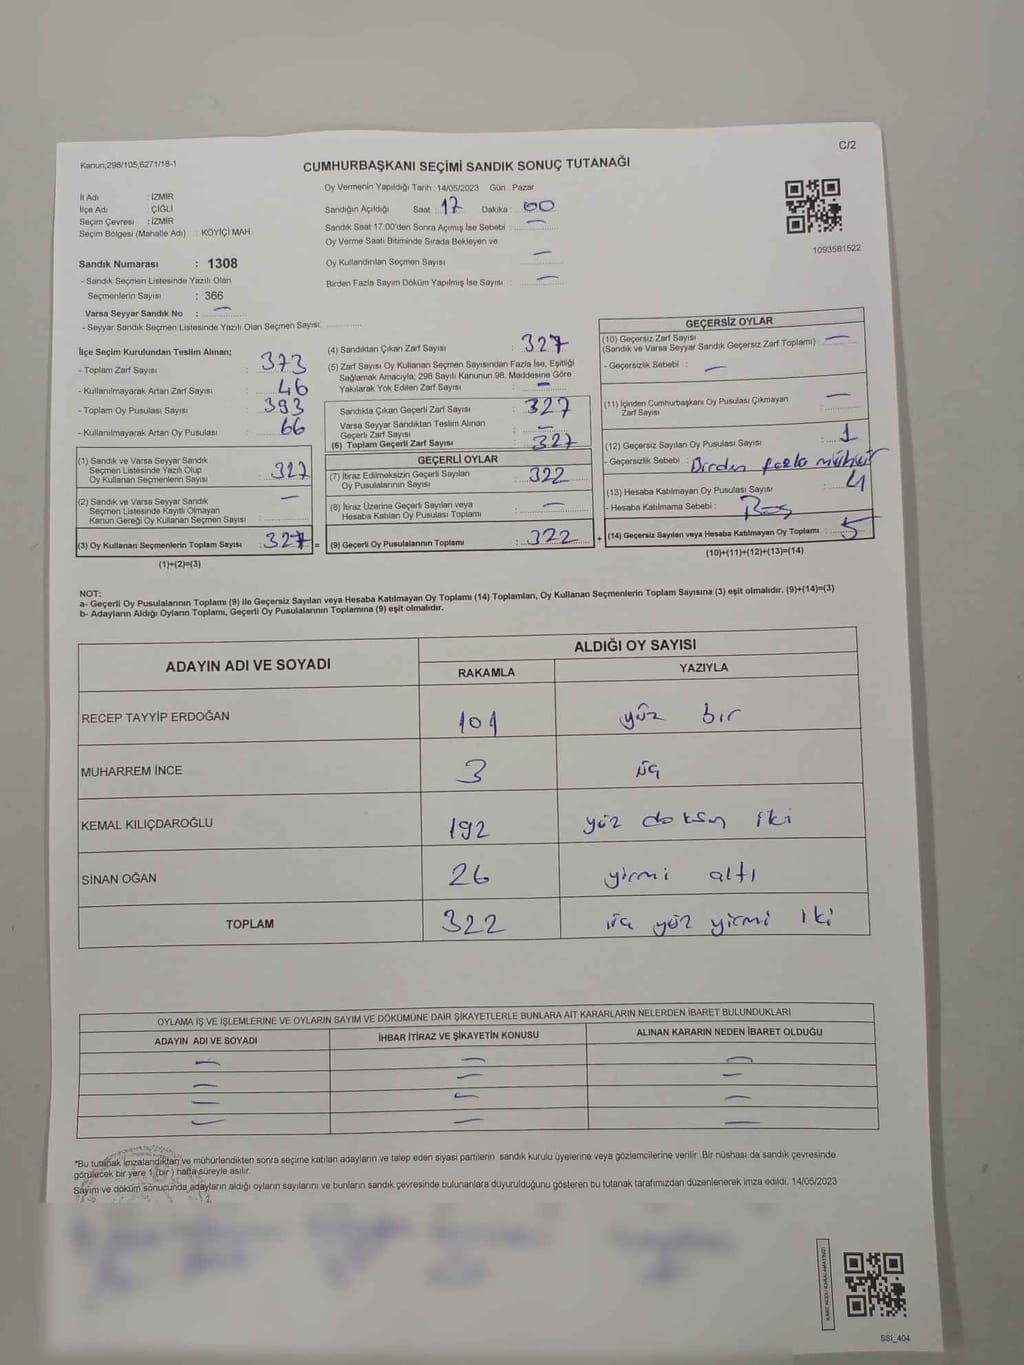 C/2
Kanun;298/105,6271/18-1
CUMHURBAŞKANI SEÇİMİ SANDIK SONUÇ TUTANAĞI
İl Adı : İZMİR
İlçe Adı : ÇİĞLİ
Seçim Çevresi : İZMİR
Seçim Bölgesi (Mahalle Adı) : KÖYİÇİ MAH
Sandık Numarası : 1308
- Sandık Seçmen Listesinde Yazılı Olan
Seçmenlerin Sayısı : 366
Varsa Seyyar Sandık No : —
- Seyyar Sandık Seçmen Listesinde Yazılı Olan Seçmen Sayısı:
Oy Vermenin Yapıldığı Tarih : 14/05/2023 Gün : Pazar
Sandığın Açıldığı Saat : 17 Dakika : 00
Sandık Saat 17:00'den Sonra Açımış İse Sebebi : —
Oy Verme Saati Bitiminde Sırada Bekleyen ve
Oy Kullandırılan Seçmen Sayısı —
Birden Fazla Sayım Döküm Yapılmış İse Sayısı : —
1093581522
İlçe Seçim Kurulundan Teslim Alınan;
- Toplam Zarf Sayısı : 373
- Kullanılmayarak Artan Zarf Sayısı : 46
- Toplam Oy Pusulası Sayısı : 393
- Kullanılmayarak Artan Oy Pusulası : 66
(1) Sandık ve Varsa Seyyar Sandık
Seçmen Listesinde Yazılı Olup
Oy Kullanan Seçmenlerin Sayısı : 327
(2) Sandık ve Varsa Seyyar Sandık
Seçmen Listesinde Kayıtlı Olmayan
Kanun Gereği Oy Kullanan Seçmen Sayısı : —
(3) Oy Kullanan Seçmenlerin Toplam Sayısı : 327 =
(1)+(2)=(3)
(4) Sandıktan Çıkan Zarf Sayısı : 327
(5) Zarf Sayısı Oy Kullanan Seçmen Sayısından Fazla İse, Eşitliği
Sağlamak Amacıyla; 298 Sayılı Kanunun 98. Maddesine Göre
Yakılarak Yok Edilen Zarf Sayısı : —
Sandıkta Çıkan Geçerli Zarf Sayısı : 327
Varsa Seyyar Sandıktan Teslim Alınan
Geçerli Zarf Sayısı : —
(6) Toplam Geçerli Zarf Sayısı : 327
GEÇERLİ OYLAR
(7) İtiraz Edilmeksizin Geçerli Sayılan
Oy Pusulalarının Sayısı : 322
(8) İtiraz Üzerine Geçerli Sayılan veya
Hesaba Katılan Oy Pusulası Toplamı : —
(9) Geçerli Oy Pusulalarının Toplamı : 322 +
GEÇERSİZ OYLAR
(10) Geçersiz Zarf Sayısı
(Sandık ve Varsa Seyyar Sandık Geçersiz Zarf Toplamı) : —
- Geçersizlik Sebebi : —
(11) İçinden Cumhurbaşkanı Oy Pusulası Çıkmayan
Zarf Sayısı : —
(12) Geçersiz Sayılan Oy Pusulası Sayısı : 1
- Geçersizlik Sebebi : Birden fazla mühür
(13) Hesaba Katılmayan Oy Pusulası Sayısı : 4
- Hesaba Katılmama Sebebi : Boş
(14) Geçersiz Sayılan veya Hesaba Katılmayan Oy Toplamı : 5
(10)+(11)+(12)+(13)=(14)
NOT:
a- Geçerli Oy Pusulalarının Toplamı (9) ile Geçersiz Sayılan veya Hesaba Katılmayan Oy Toplamı (14) Toplamları, Oy Kullanan Seçmenlerin Toplam Sayısına (3) eşit olmalıdır. (9)+(14)=(3)
b- Adayların Aldığı Oyların Toplamı, Geçerli Oy Pusulalarının Toplamına (9) eşit olmalıdır.
ADAYIN ADI VE SOYADI
ALDIĞI OY SAYISI
RAKAMLA YAZIYLA
RECEP TAYYİP ERDOĞAN 101 yüz bir
MUHARREM İNCE 3 üç
KEMAL KILIÇDAROĞLU 192 yüz doksan iki
SİNAN OĞAN 26 yirmi altı
TOPLAM 322 üç yüz yirmi iki
OYLAMA İŞ VE İŞLEMLERİNE VE OYLARIN SAYIM VE DÖKÜMÜNE DAİR ŞİKAYETLERLE BUNLARA AİT KARARLARIN NELERDEN İBARET BULUNDUKLARI
ADAYIN ADI VE SOYADI İHBAR İTİRAZ VE ŞİKAYETİN KONUSU ALINAN KARARIN NEDEN İBARET OLDUĞU
— — —
— — —
— — —
— — —
*Bu tutanak imzalandıktan ve mühürlendikten sonra seçime katılan adayların ve talep eden siyasi partilerin sandık kurulu üyelerine veya gözlemcilerine verilir .Bir nüshası da sandık çevresinde
görülecek bir yere 1 (bir ) hafta süreyle asılır.
Sayım ve döküm sonucunda adayların aldığı oyların sayılarını ve bunların sandık çevresinde bulunanlara duyurulduğunu gösteren bu tutanak tarafımızdan düzenlenerek imza edildi. 14/05/2023
SSİ_404